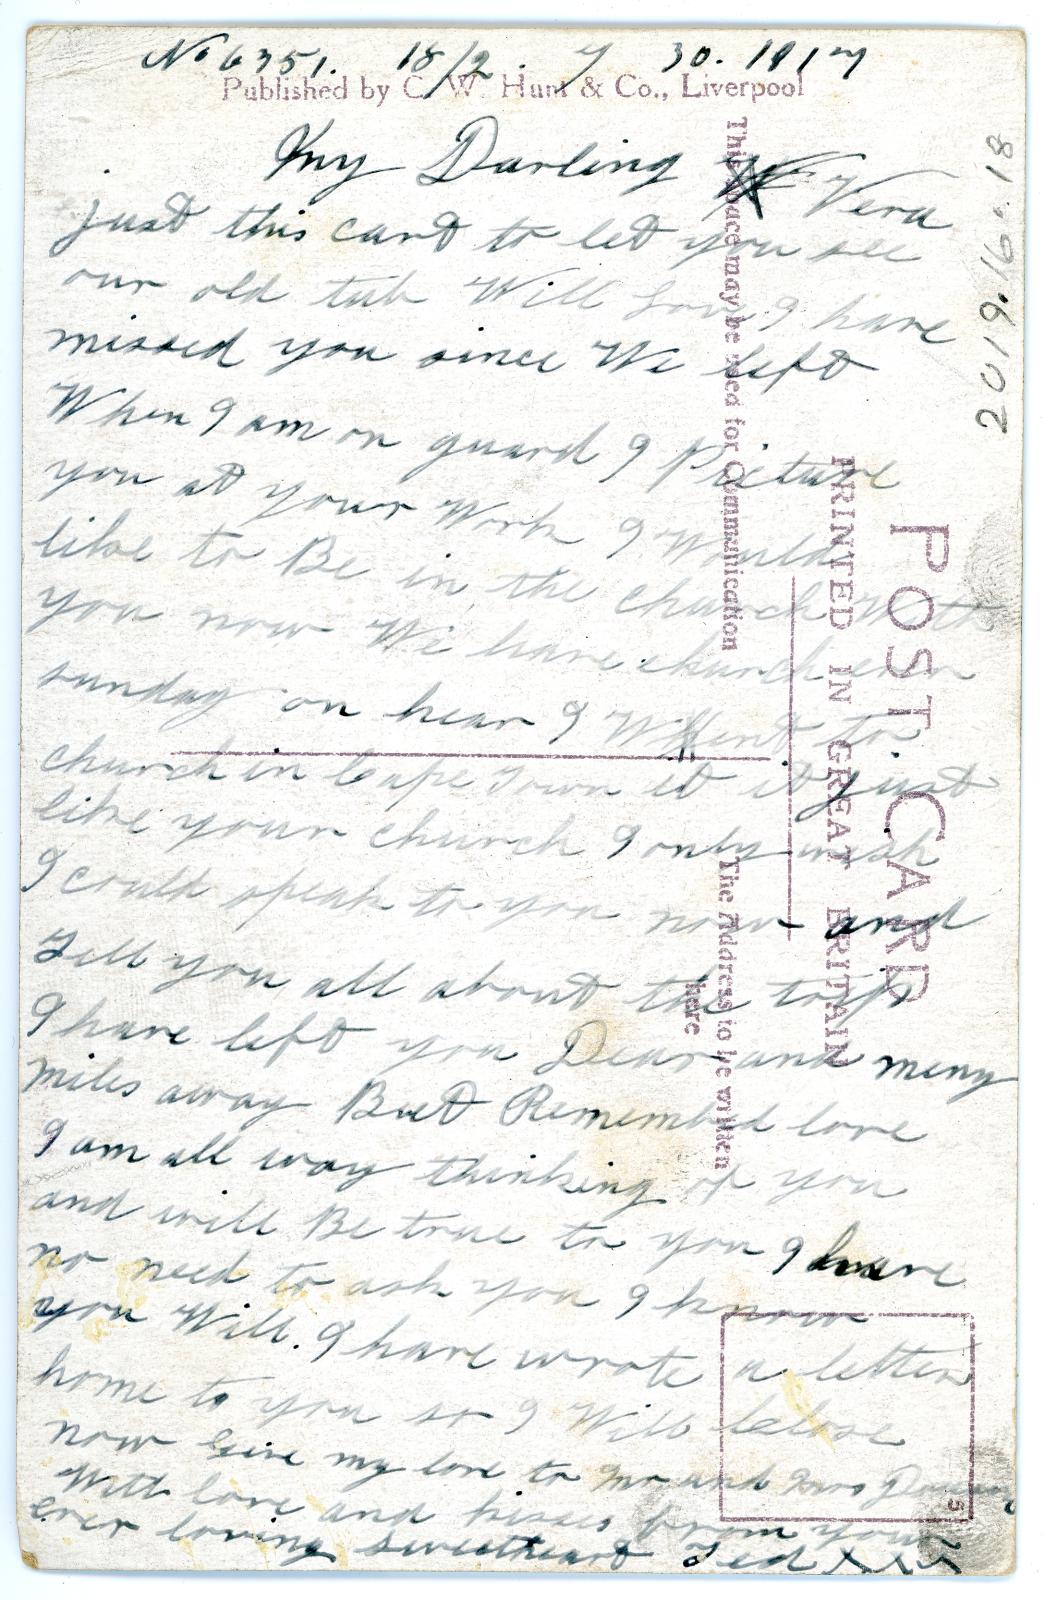 No 6351. 18/2. 7 30. 1917
Published by C. W. Hunt & Co., Liverpool
My Darling Vera
just this card to let you see
our old tub Will Love I have
missed you since We left
When I am on guard I Picture
you at your Work I Would
like to Be in the church With
you now We have church ever
sunday on hear I Went to
church in Cape Town it it just
like your church I only wish
I could speak to you now and
Tell you all about the trip
I have left you Dear and meny
miles away But Remembed love
I am all way thinking of you
and will Be true to you I have
no need to ask you I know
you Will. I have wrote a letter
home to you so I Will Celose
now Give my love to Mr and Mrs
With love and kisses from your
ever loving sweetheart Ted XXX
15
2019.16.18
POST CARD
PRINTED IN GREAT BRITAIN
This space may be used for Communication
The Address to be written
here